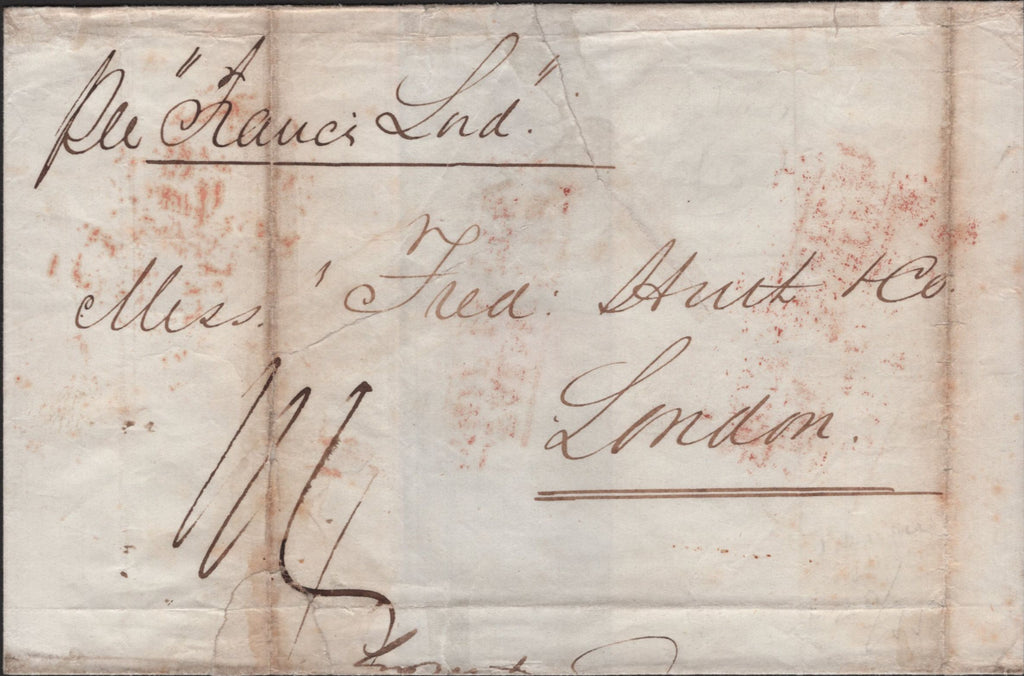 Per "Francis Lord".
Mess.rs Fred: Huth & Co.
London.